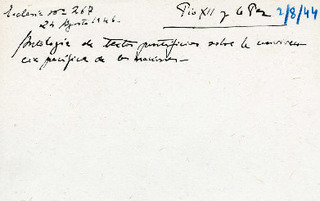 Ecclesia nº 267 Pio XII y la Paz 2/8/44
24 Agosto 1946.
Antología de textos pontificios sobre la conviven
cia pacífica de las naciones—